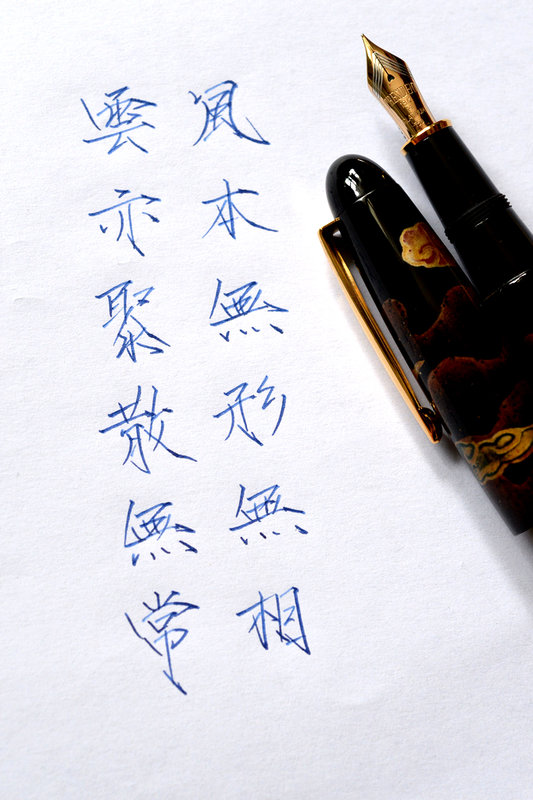 風本無形無相
雲亦聚散無常